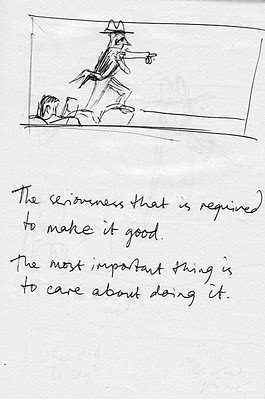 The seriousness that is required
to make it good.
The most important thing is
to care about doing it.